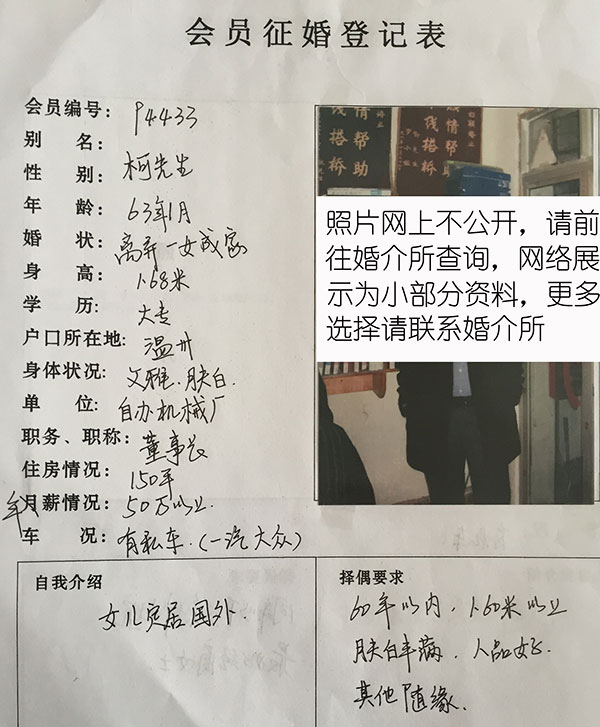 会员征婚登记表
会员编号：P4433
别 名：柯先生
性 别：
年 龄：63年1月
婚 状：离弃一女成家
身 高：1.68米
学 历：大专
户口所在地：温州
身体状况：文雅.肤白.
单 位：自办机械厂
职务、职称：董事长
住房情况：150平
年月薪情况：50万以上.
车 况：有私车.(一汽大众)
情帮助
线搭桥
情帮助
线搭桥
照片网上不公开，请前
往婚介所查询，网络展
示为小部分资料，更多
选择请联系婚介所
自我介绍
女儿定居国外.
择偶要求
60年以内，1.60米以上
肤白丰满.人品好.
其他随缘.